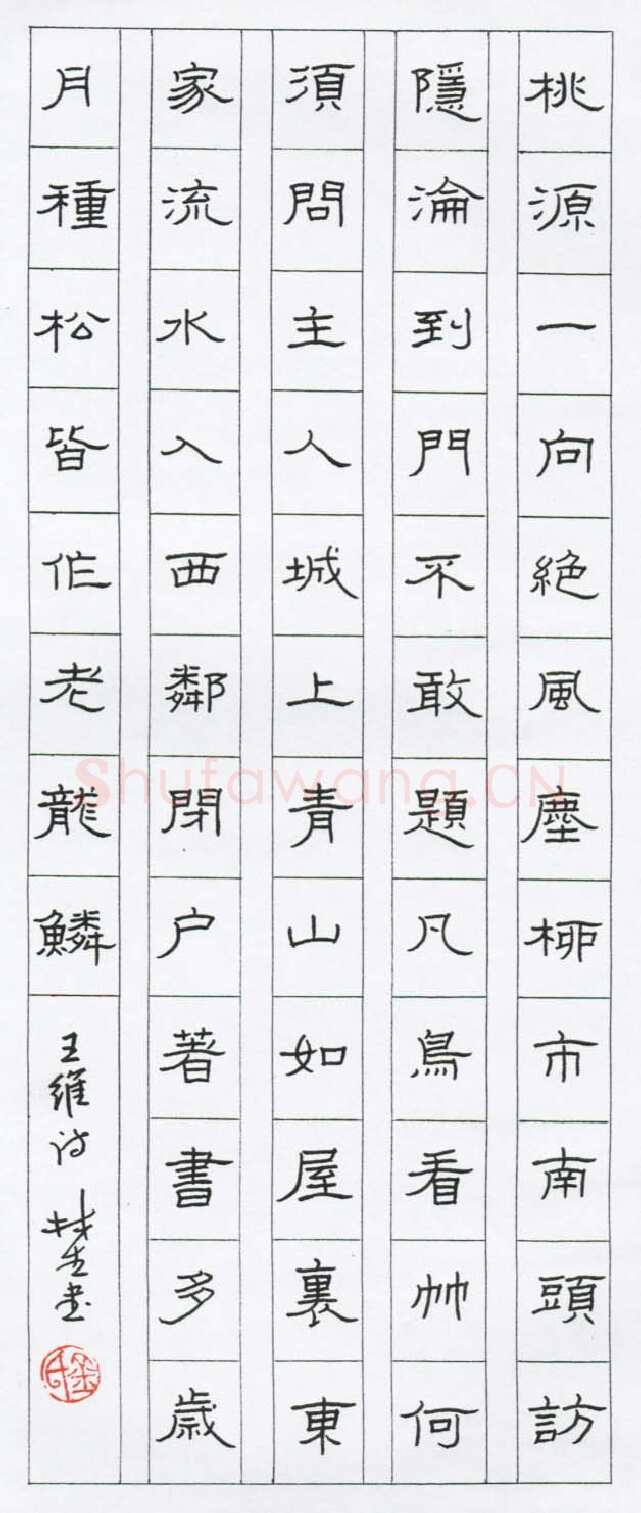 桃源一向絶風塵柳市南頭訪
隱淪到門不敢題凡鳥看竹何
須問主人城上青山如屋裏東
家流水入西鄰閉户著書多歲
月種松皆作老龍鱗
王維诗
Shufawang.CN